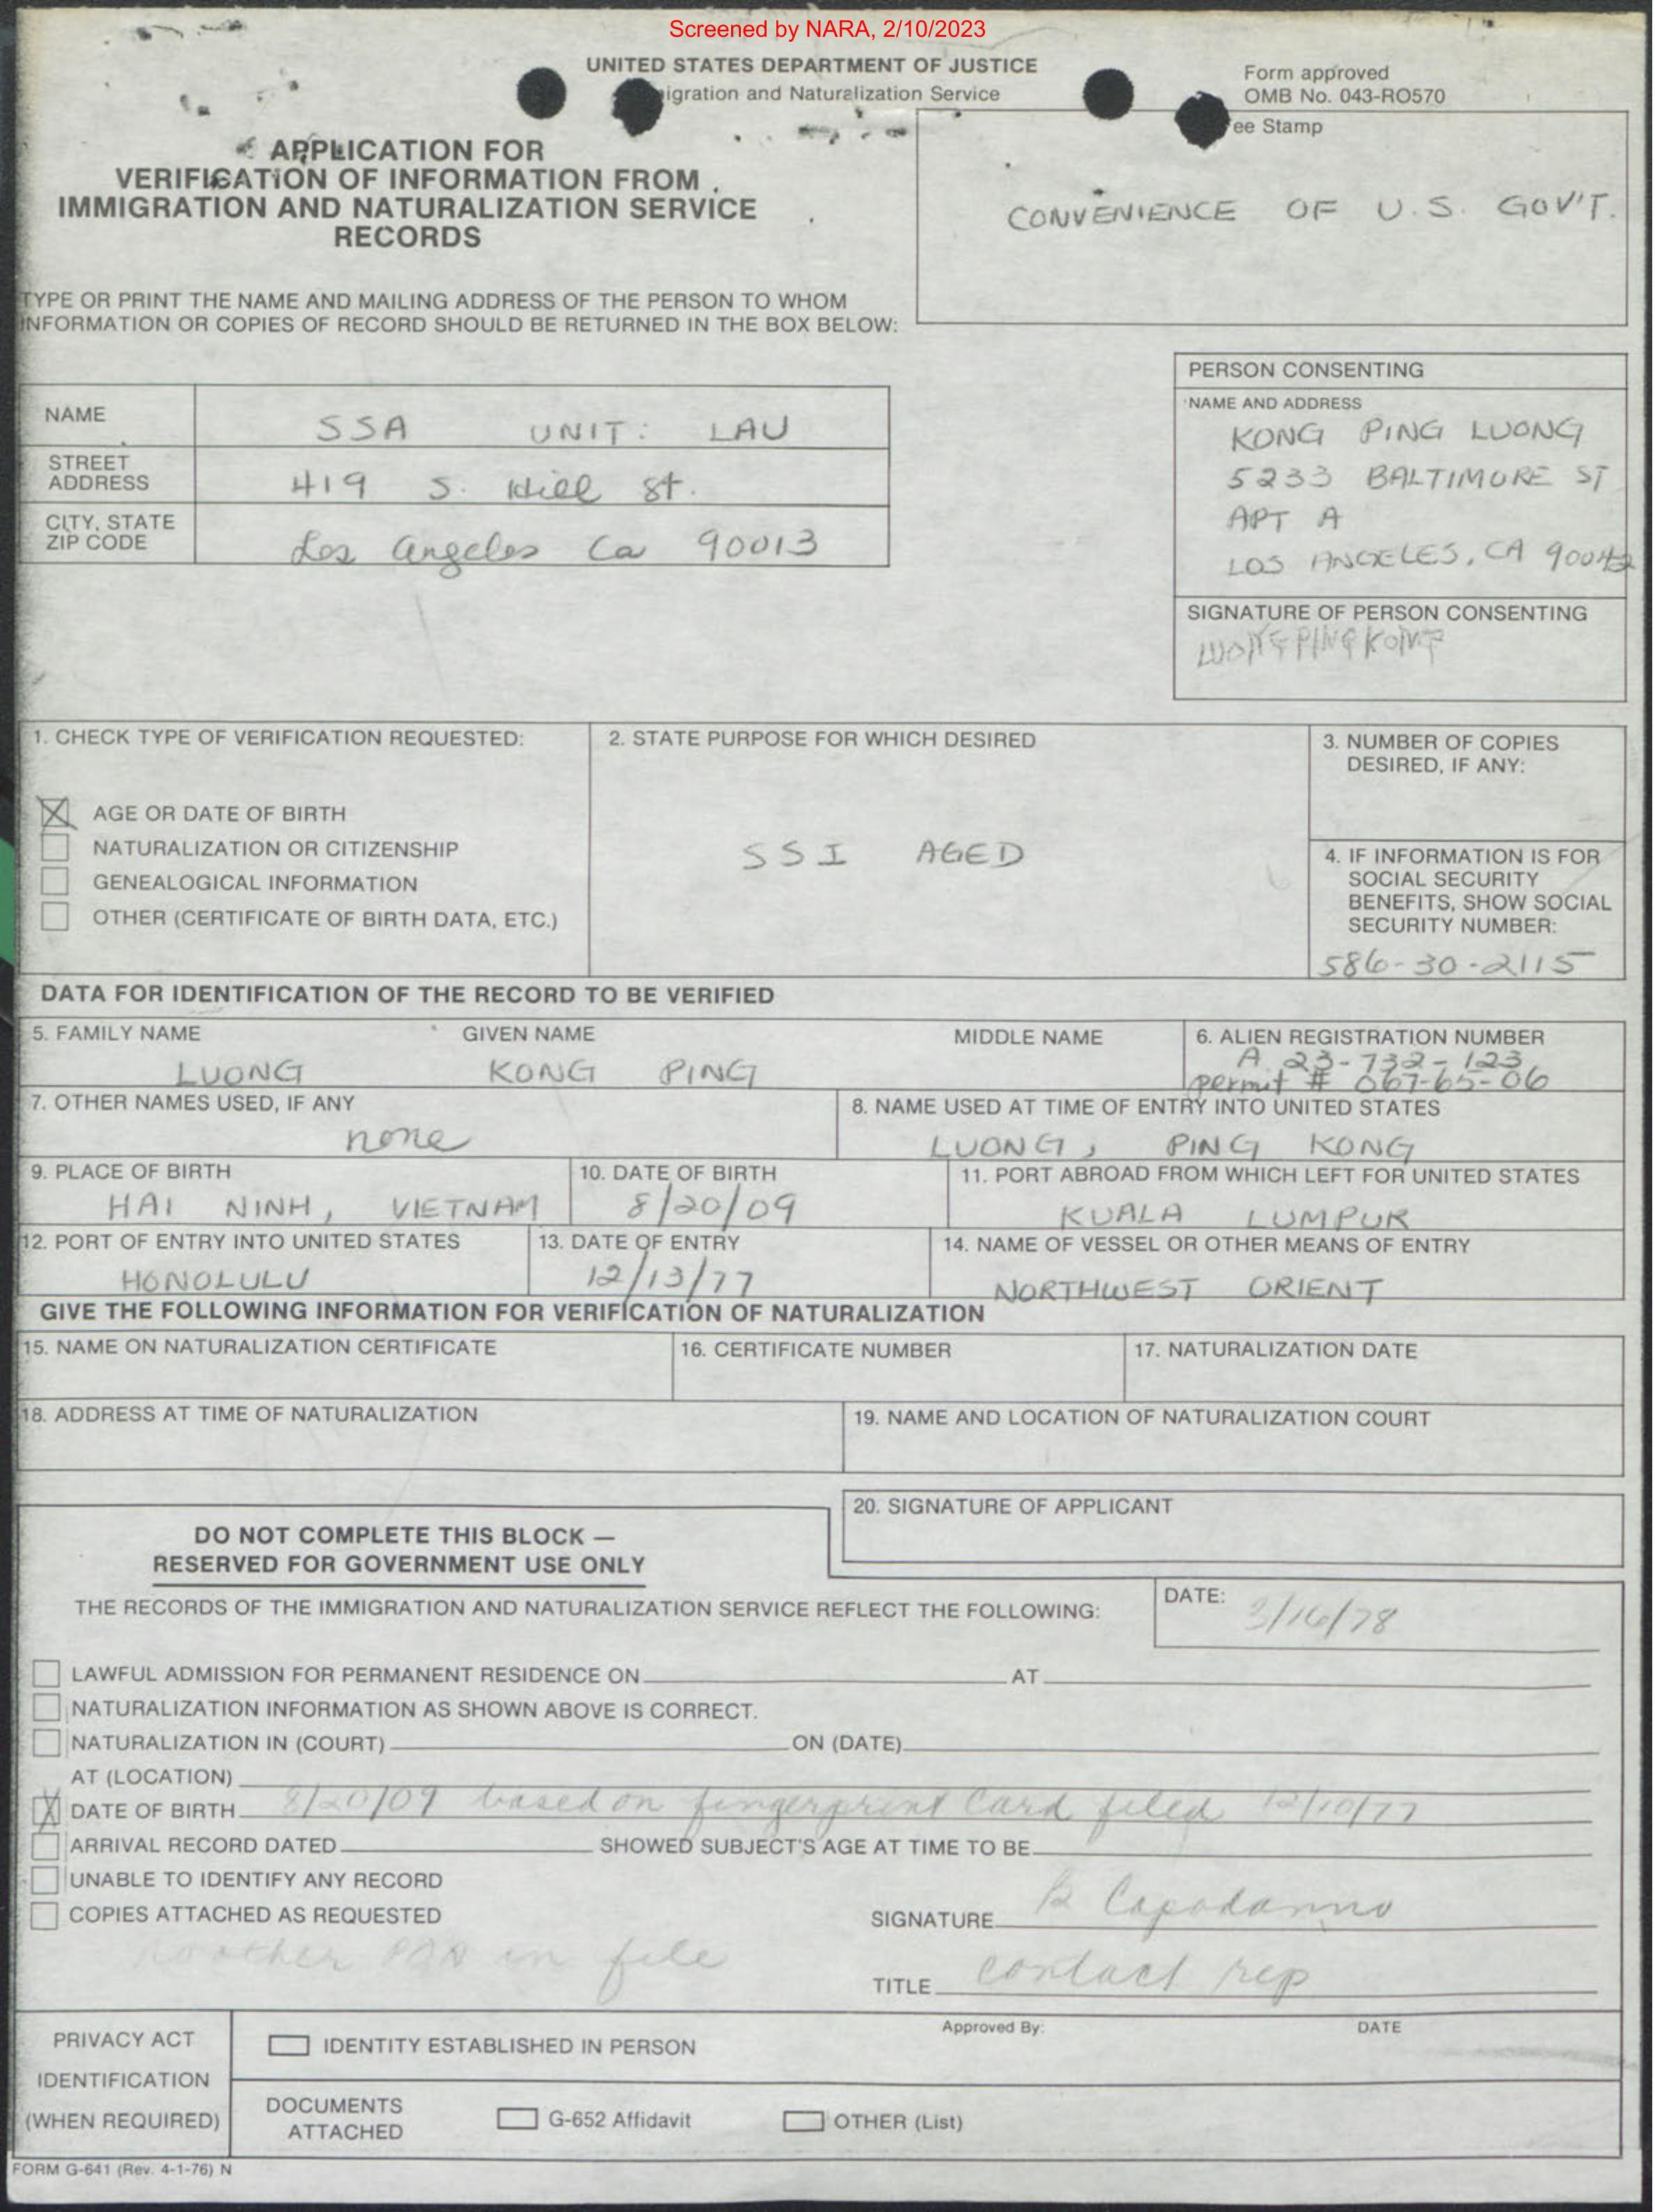 Screened by NARA, 2/10/2023
UNITED STATES DEPARTMENT OF JUSTICE
igration and Naturalization Service
Form approved
OMB No. 043-RO570
ee Stamp
CONVENIENCE OF U.S. GOV'T.
APPLICATION FOR
VERIFICATION OF INFORMATION FROM
IMMIGRATION AND NATURALIZATION SERVICE
RECORDS
TYPE OR PRINT THE NAME AND MAILING ADDRESS OF THE PERSON TO WHOM
INFORMATION OR COPIES OF RECORD SHOULD BE RETURNED IN THE BOX BELOW:
NAME SSA UNIT: LAU
STREET
ADDRESS 419 S. Hill St.
CITY, STATE
ZIP CODE Los Angeles Ca 90013
PERSON CONSENTING
NAME AND ADDRESS
KONG PING LUONG
5233 BALTIMORE ST
APT A
LOS ANGELES, CA 90042
SIGNATURE OF PERSON CONSENTING
LUONG PING KONG
1. CHECK TYPE OF VERIFICATION REQUESTED:
AGE OR DATE OF BIRTH
NATURALIZATION OR CITIZENSHIP
GENEALOGICAL INFORMATION
OTHER (CERTIFICATE OF BIRTH DATA, ETC.)
2. STATE PURPOSE FOR WHICH DESIRED
SSI AGED
3. NUMBER OF COPIES
DESIRED, IF ANY:
4. IF INFORMATION IS FOR
SOCIAL SECURITY
BENEFITS, SHOW SOCIAL
SECURITY NUMBER:
586-30-2115
DATA FOR IDENTIFICATION OF THE RECORD TO BE VERIFIED
5. FAMILY NAME GIVEN NAME MIDDLE NAME
LUONG KONG PING
6. ALIEN REGISTRATION NUMBER
A 23-732-123
permit # 067-65-06
7. OTHER NAMES USED, IF ANY
none
8. NAME USED AT TIME OF ENTRY INTO UNITED STATES
LUONG, PING KONG
9. PLACE OF BIRTH
HAI NINH, VIETNAM
10. DATE OF BIRTH
8/20/09
11. PORT ABROAD FROM WHICH LEFT FOR UNITED STATES
KUALA LUMPUR
12. PORT OF ENTRY INTO UNITED STATES
HONOLULU
13. DATE OF ENTRY
12/13/77
14. NAME OF VESSEL OR OTHER MEANS OF ENTRY
NORTHWEST ORIENT
GIVE THE FOLLOWING INFORMATION FOR VERIFICATION OF NATURALIZATION
15. NAME ON NATURALIZATION CERTIFICATE
16. CERTIFICATE NUMBER
17. NATURALIZATION DATE
18. ADDRESS AT TIME OF NATURALIZATION
19. NAME AND LOCATION OF NATURALIZATION COURT
20. SIGNATURE OF APPLICANT
DO NOT COMPLETE THIS BLOCK —
RESERVED FOR GOVERNMENT USE ONLY
THE RECORDS OF THE IMMIGRATION AND NATURALIZATION SERVICE REFLECT THE FOLLOWING:
DATE: 3/16/78
LAWFUL ADMISSION FOR PERMANENT RESIDENCE ON AT
NATURALIZATION INFORMATION AS SHOWN ABOVE IS CORRECT.
NATURALIZATION IN (COURT) ON (DATE)
AT (LOCATION)
DATE OF BIRTH 8/20/09 based on fingerprint Card filed 12/10/77
ARRIVAL RECORD DATED SHOWED SUBJECT'S AGE AT TIME TO BE
UNABLE TO IDENTIFY ANY RECORD
COPIES ATTACHED AS REQUESTED
in file
SIGNATURE B Capodanno
TITLE contact rep
PRIVACY ACT
IDENTIFICATION
(WHEN REQUIRED)
IDENTITY ESTABLISHED IN PERSON
Approved By: DATE
DOCUMENTS
ATTACHED
G-652 Affidavit
OTHER (List)
FORM G-641 (Rev. 4-1-76) N